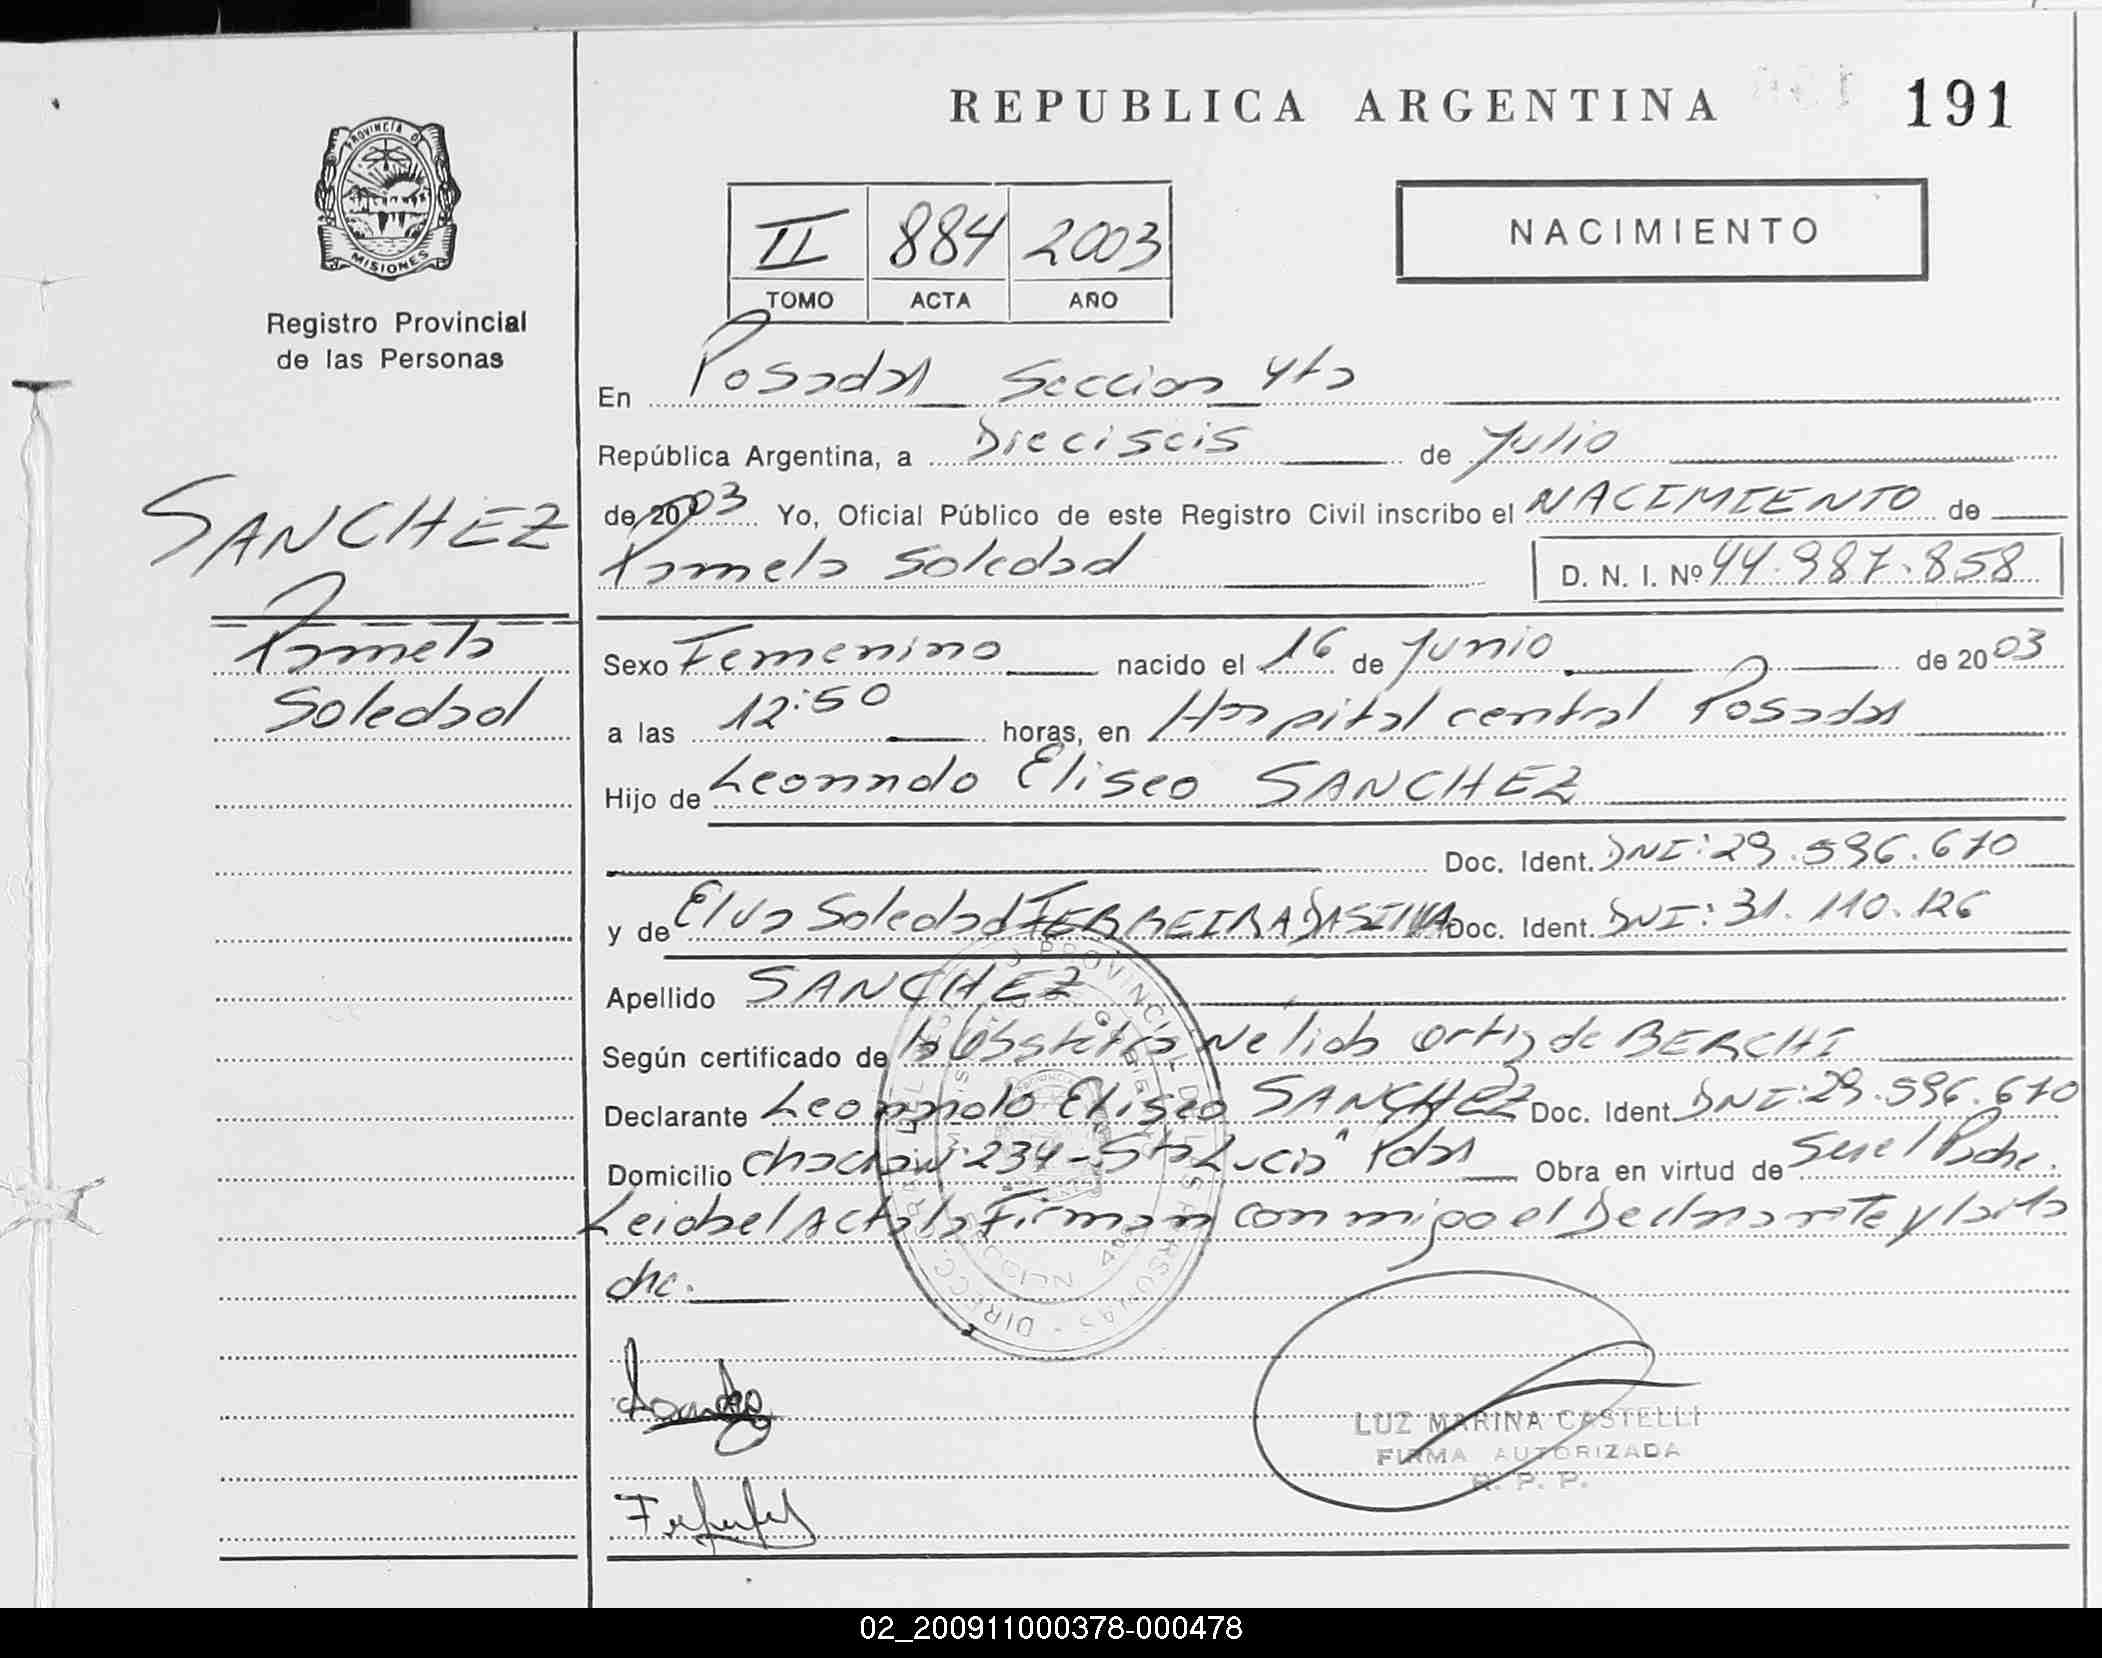 REPUBLICA ARGENTINA
191
PROVINCIA DE
MISIONES
Registro Provincial
de las Personas
NACIMIENTO
II 884 2003
TOMO ACTA AÑO
En Posadas Seccion 4ta
República Argentina, a Dieciseis de Julio
de 2003 Yo, Oficial Público de este Registro Civil inscribo el NACIMIENTO de
Pamela Soledad D. N. I. Nº 44.987.858
SANCHEZ
Pamela
Soledad
Sexo Femenino nacido el 16 de Junio de 2003
a las 12:50 horas, en Hospital central Posadas
Hijo de Leonardo Eliseo SANCHEZ
Doc. Ident. DNI: 29.596.670
y de Elva Soledad FERREIRA DASILVA Doc. Ident. DNI: 31.110.126
Apellido SANCHEZ
Según certificado de la Obstetra Nelida Ortiz de BERCHI
Declarante Leonardo Eliseo SANCHEZ Doc. Ident. DNI: 29.596.670
Domicilio 234 - Sta Lucia Pdas Obra en virtud de Ser el Padre.
Leida el Acta la Firman con migo el Declarante y la
dre.
LUZ MARINA CASTELLI
FIRMA AUTORIZADA
R. P. P.
02_200911000378-000478